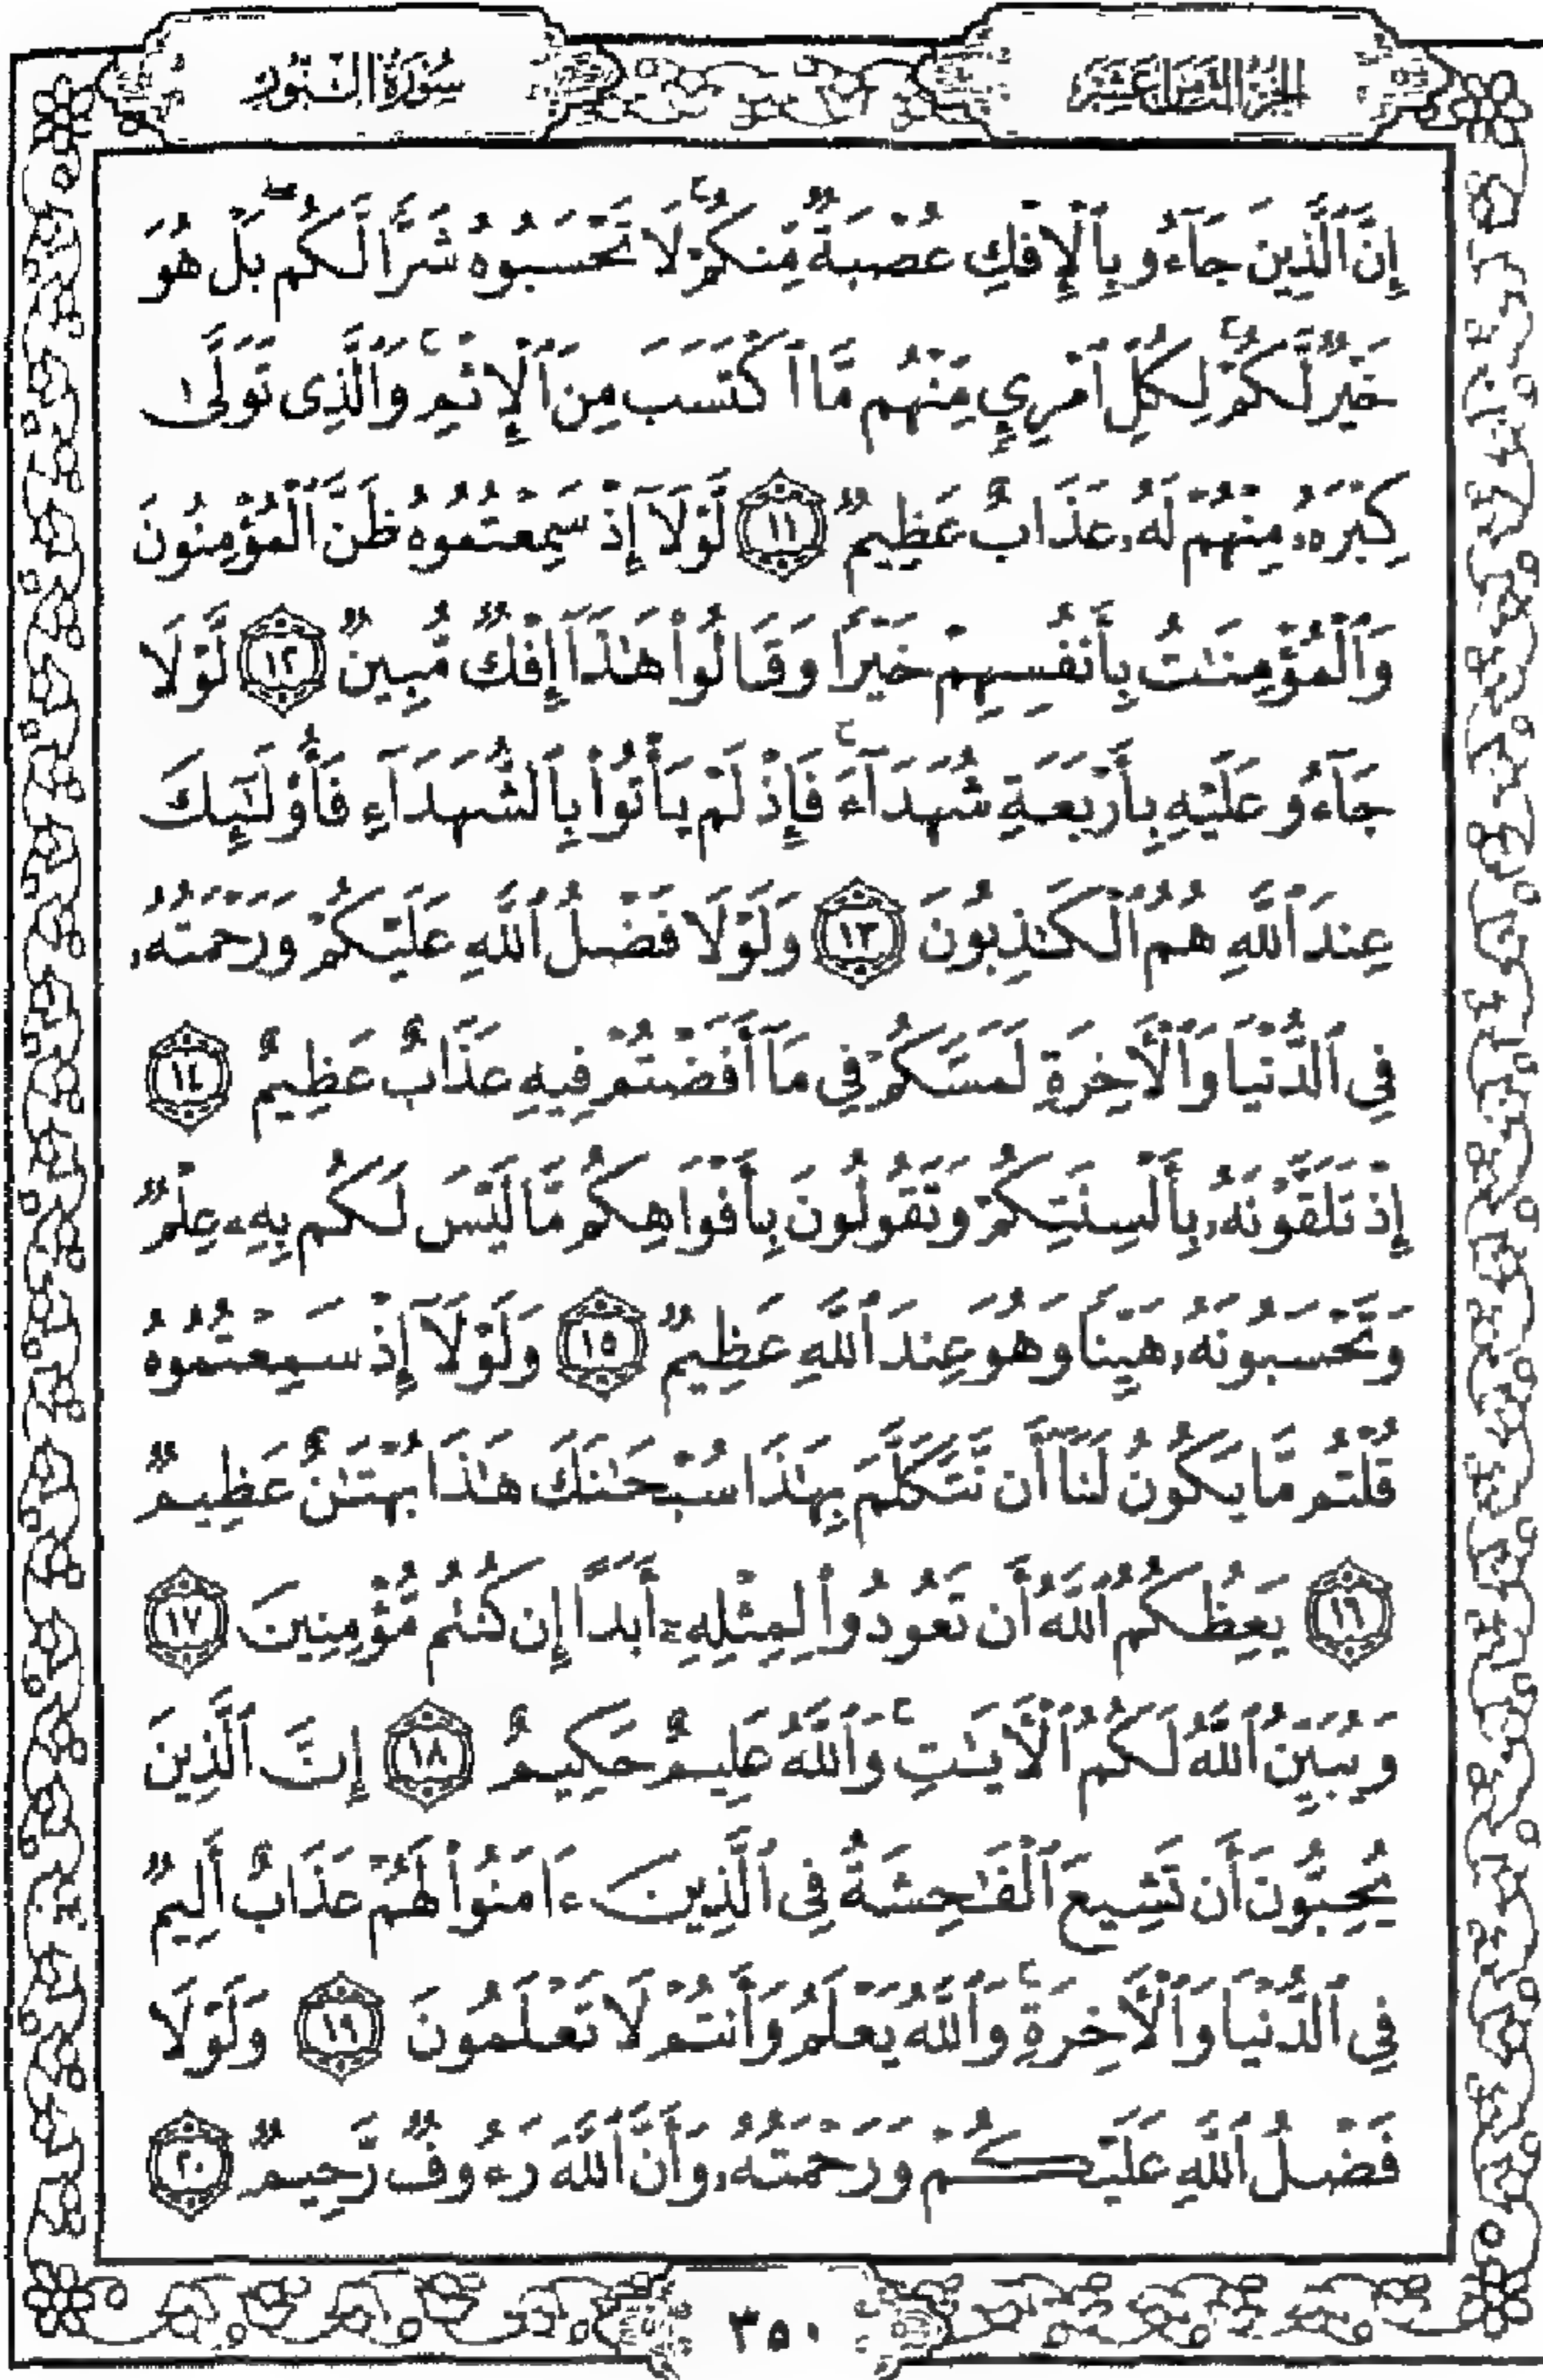 الجُزءُ الثَّامِنَ عَشَرَ
سُورَةُ النُّورِ
إِنَّ ٱلَّذِينَ جَآءُو بِٱلْإِفْكِ عُصْبَةٌ مِّنكُمْ ۚ لَا تَحْسَبُوهُ شَرًّا لَّكُم ۖ بَلْ هُوَ
خَيْرٌ لَّكُمْ ۚ لِكُلِّ ٱمْرِئٍ مِّنْهُم مَّا ٱكْتَسَبَ مِنَ ٱلْإِثْمِ ۚ وَٱلَّذِى تَوَلَّىٰ
كِبْرَهُۥ مِنْهُمْ لَهُۥ عَذَابٌ عَظِيمٌ ١١ لَّوْلَآ إِذْ سَمِعْتُمُوهُ ظَنَّ ٱلْمُؤْمِنُونَ
وَٱلْمُؤْمِنَٰتُ بِأَنفُسِهِمْ خَيْرًا وَقَالُوا۟ هَٰذَآ إِفْكٌ مُّبِينٌ ١٢ لَّوْلَا
جَآءُو عَلَيْهِ بِأَرْبَعَةِ شُهَدَآءَ ۚ فَإِذْ لَمْ يَأْتُوا۟ بِٱلشُّهَدَآءِ فَأُو۟لَٰٓئِكَ
عِندَ ٱللَّهِ هُمُ ٱلْكَٰذِبُونَ ١٣ وَلَوْلَا فَضْلُ ٱللَّهِ عَلَيْكُمْ وَرَحْمَتُهُۥ
فِى ٱلدُّنْيَا وَٱلْأَخِرَةِ لَمَسَّكُمْ فِى مَآ أَفَضْتُمْ فِيهِ عَذَابٌ عَظِيمٌ ١٤
إِذْ تَلَقَّوْنَهُۥ بِأَلْسِنَتِكُمْ وَتَقُولُونَ بِأَفْوَاهِكُم مَّا لَيْسَ لَكُم بِهِۦ عِلْمٌ
وَتَحْسَبُونَهُۥ هَيِّنًا وَهُوَ عِندَ ٱللَّهِ عَظِيمٌ ١٥ وَلَوْلَآ إِذْ سَمِعْتُمُوهُ
قُلْتُم مَّا يَكُونُ لَنَآ أَن نَّتَكَلَّمَ بِهَٰذَا سُبْحَٰنَكَ هَٰذَا بُهْتَٰنٌ عَظِيمٌ
١٦ يَعِظُكُمُ ٱللَّهُ أَن تَعُودُوا۟ لِمِثْلِهِۦٓ أَبَدًا إِن كُنتُم مُّؤْمِنِينَ ١٧
وَيُبَيِّنُ ٱللَّهُ لَكُمُ ٱلْأَيَٰتِ ۚ وَٱللَّهُ عَلِيمٌ حَكِيمٌ ١٨ إِنَّ ٱلَّذِينَ
يُحِبُّونَ أَن تَشِيعَ ٱلْفَٰحِشَةُ فِى ٱلَّذِينَ ءَامَنُوا۟ لَهُمْ عَذَابٌ أَلِيمٌ
فِى ٱلدُّنْيَا وَٱلْأَخِرَةِ ۚ وَٱللَّهُ يَعْلَمُ وَأَنتُمْ لَا تَعْلَمُونَ ١٩ وَلَوْلَا
فَضْلُ ٱللَّهِ عَلَيْكُمْ وَرَحْمَتُهُۥ وَأَنَّ ٱللَّهَ رَءُوفٌ رَّحِيمٌ ٢٠
٣٥٠